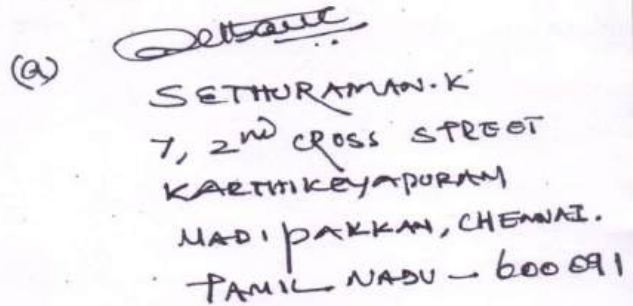 (a)
SETHURAMAN.K
7, 2nd CROSS STREET
KARTHIKEYAPURAM
MADIPAKKAM, CHENNAI.
TAMIL NADU - 600091